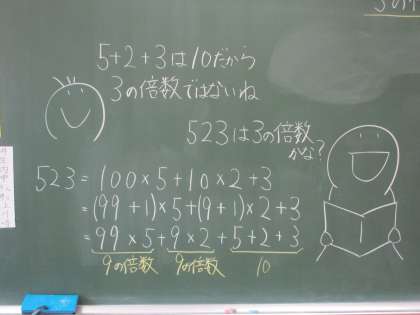 3の倍
5+2+3は10だから
3の倍数ではないね
523は3の倍数
かな?
523 = 100×5+10×2+3
= (99+1)×5+(9+1)×2+3
= 99×5+9×2+5+2+3
9の倍数 9の倍数 10